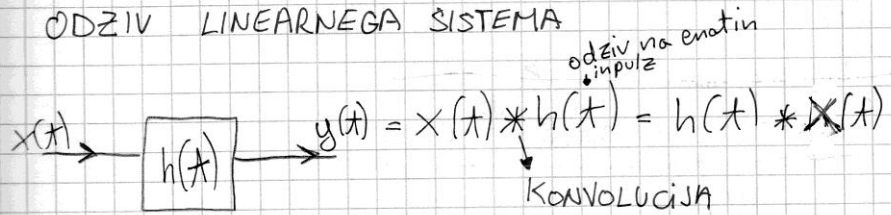 ODZIV LINEARNEGA SISTEMA
odziv na enotin
inpulz
x(t) h(t) y(t) = x(t) * h(t) = h(t) * x(t)
KONVOLUCIJA